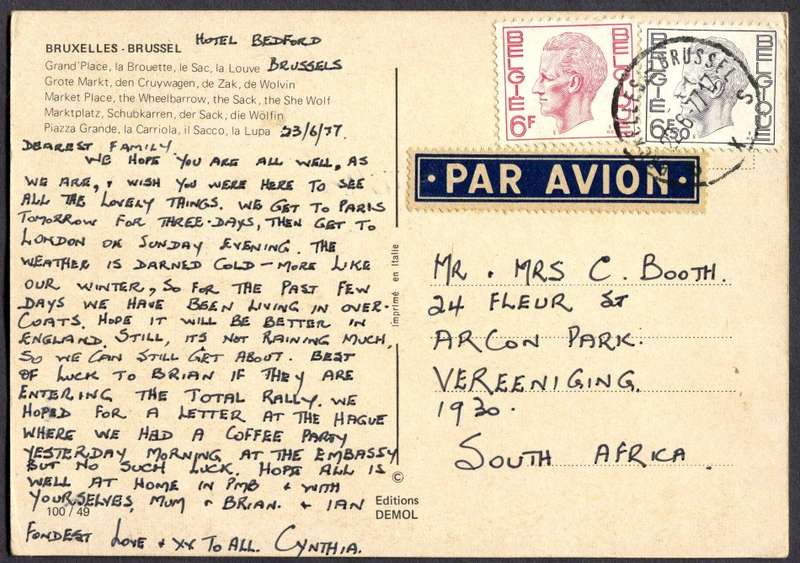 HOTEL BEDFORD
BRUXELLES - BRUSSEL
BRUSSELS
Grand'Place, la Brouette, le Sac, la Louve
Grote Markt, den Cruywagen, de Zak, de Wolvin
Market Place, the Wheelbarrow, the Sack, the She Wolf
Marktplatz, Schubkarren, der Sack, die Wölfin
Piazza Grande, la Carriola, il Sacco, la Lupa
23/6/77.
DEAREST FAMILY
WE HOPE YOU ARE ALL WELL, AS
WE ARE, & WISH YOU WERE HERE TO SEE
ALL THE LOVELY THINGS. WE GET TO PARIS
TOMORROW FOR THREE-DAYS, THEN GET TO
LONDON ON SUNDAY EVENING. THE
WEATHER IS DARNED COLD - MORE LIKE
OUR WINTER, SO FOR THE PAST FEW
DAYS WE HAVE BEEN LIVING IN OVER-
COATS. HOPE IT WILL BE BETTER IN
ENGLAND. STILL, ITS NOT RAINING MUCH,
SO WE CAN STILL GET ABOUT. BEST
OF LUCK TO BRIAN IF THEY ARE
ENTERING THE TOTAL RALLY. WE
HOPED FOR A LETTER AT THE HAGUE
WHERE WE HAD A COFFEE PARTY
YESTERDAY MORNING AT THE EMBASSY
BUT NO SUCH LUCK. HOPE ALL IS
WELL AT HOME IN PMB & WITH
YOURSELVES, MUM & BRIAN. & IAN
100 / 49
FONDEST LOVE & XX TO ALL. CYNTHIA.
imprimé en Italie
©
Editions
DEMOL
BELGIE BELGIQUE
6F
BELGIE BELGIQUE
6F50
23-6-77
PAR AVION
MR & MRS C. BOOTH.
24 FLEUR ST
ARCON PARK.
VEREENIGING.
1930.
SOUTH AFRICA.